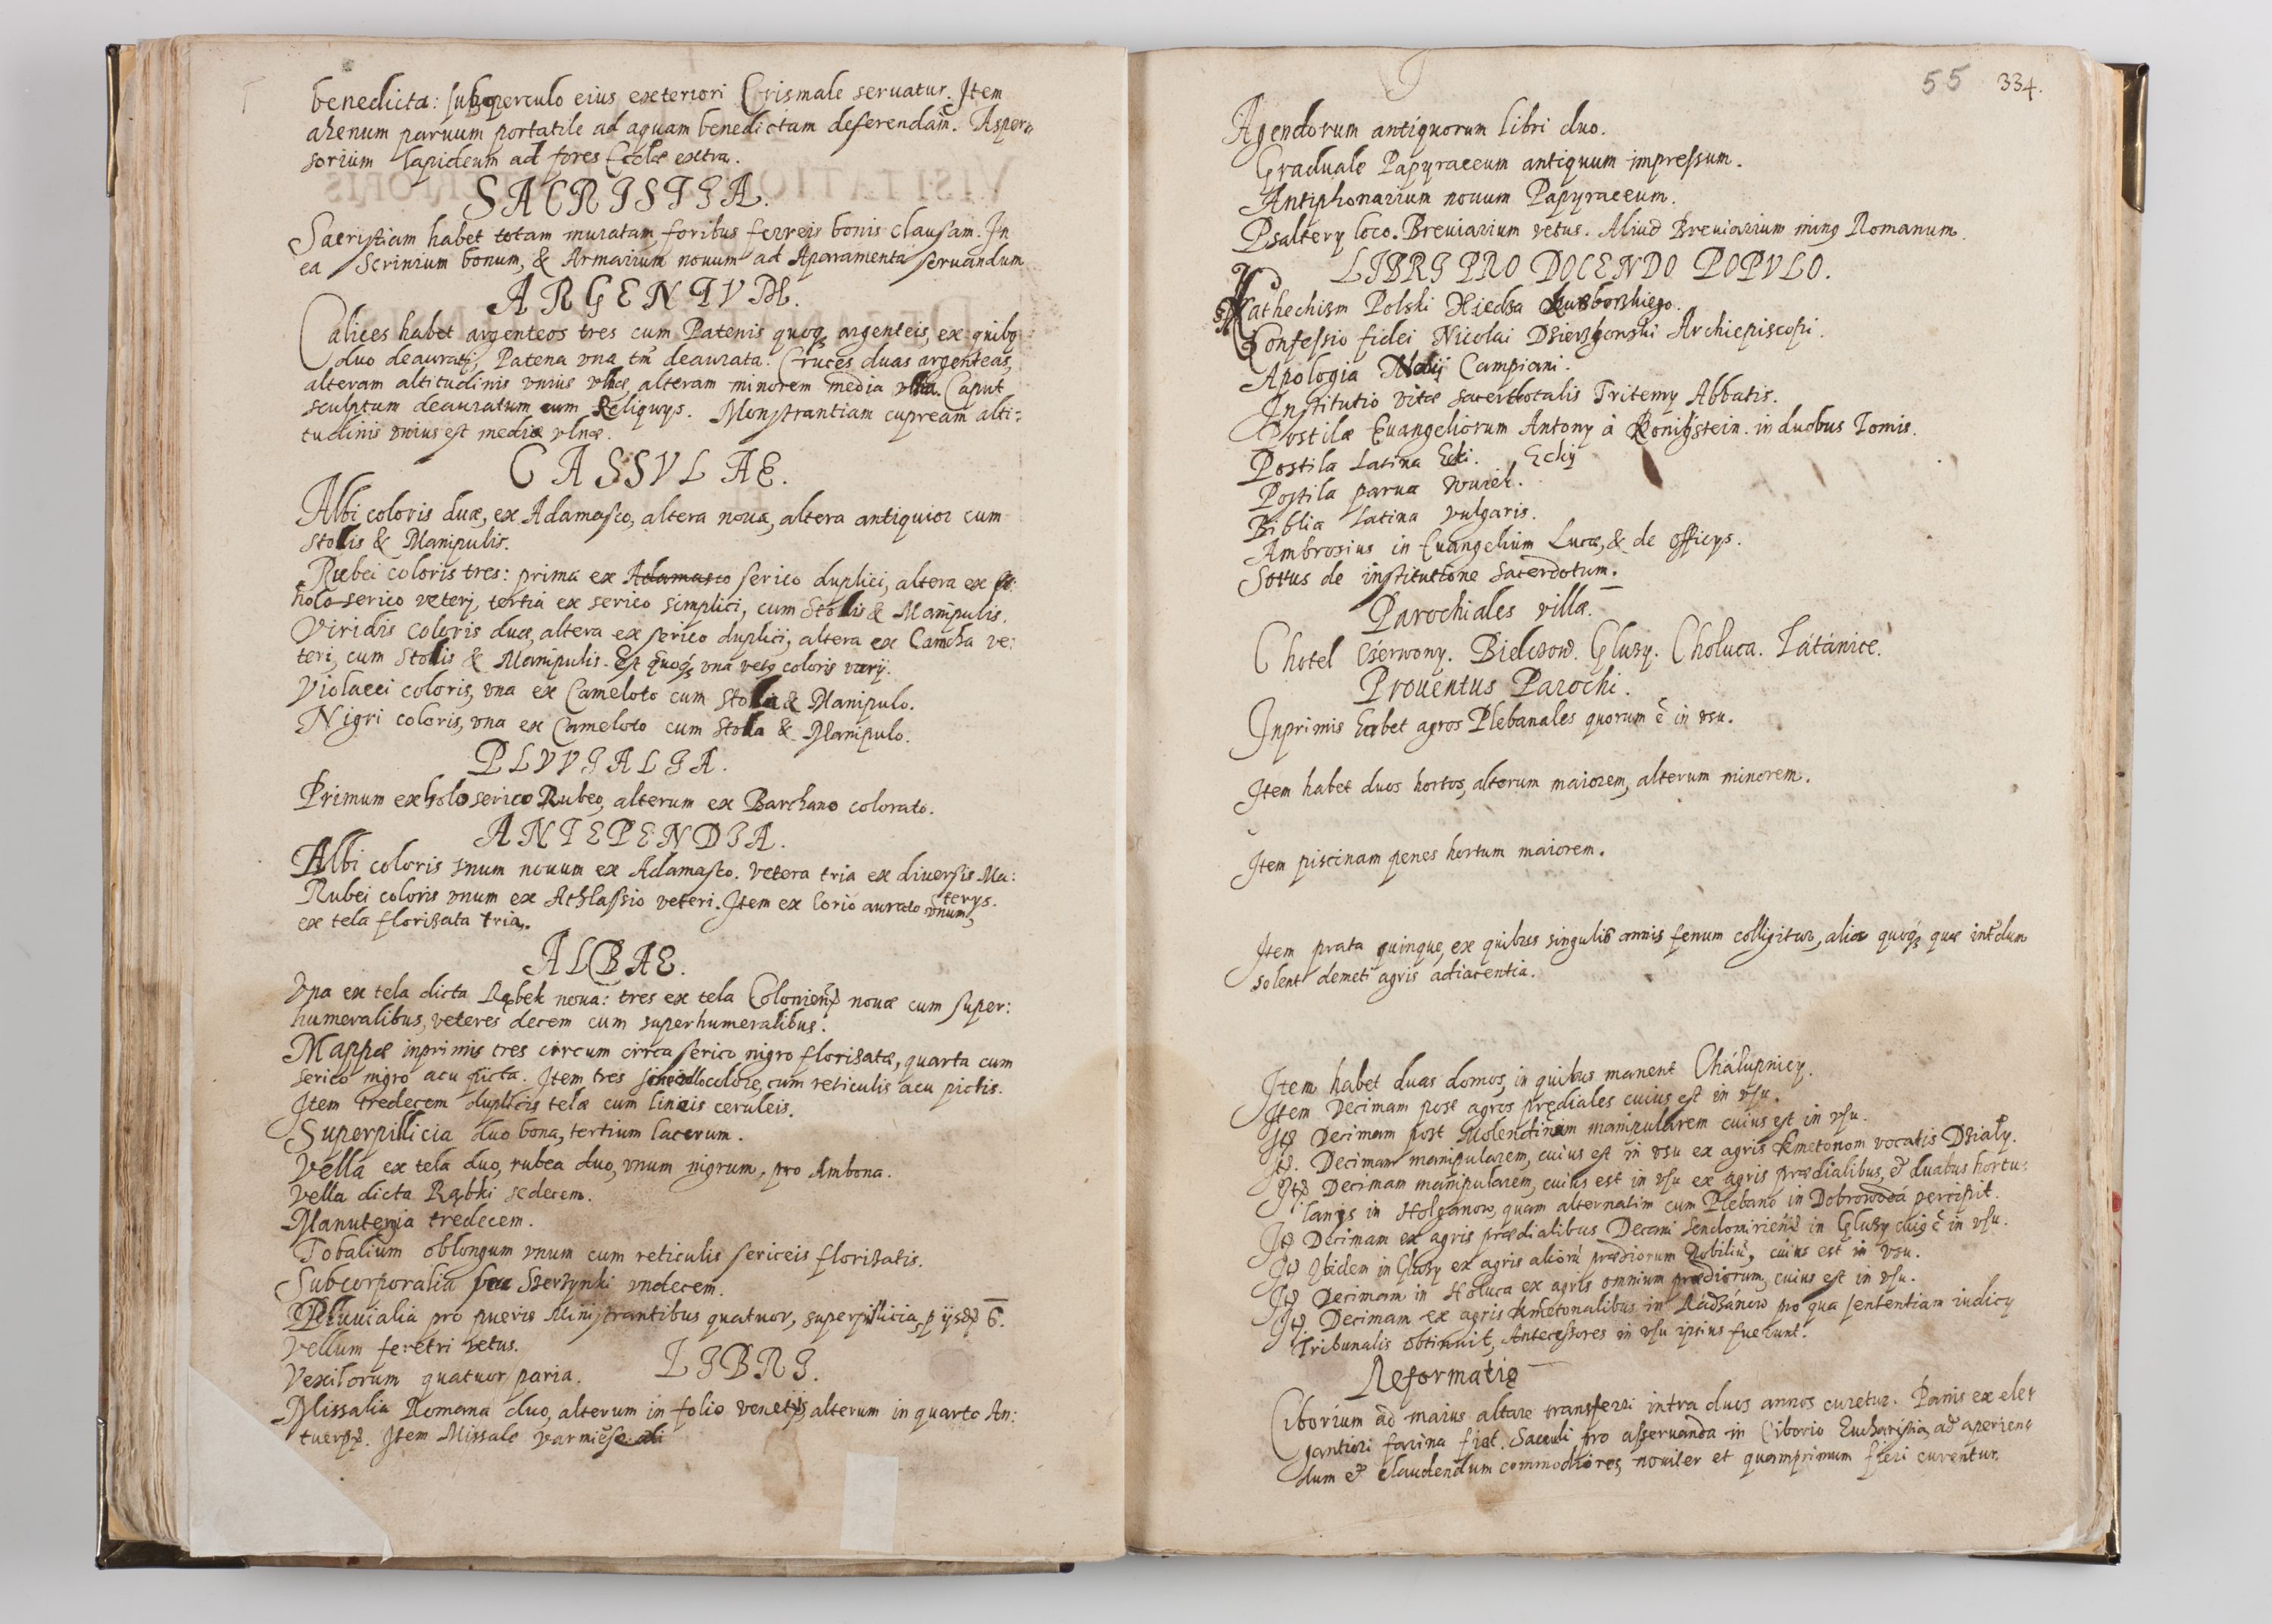 benedicta: sub operculo eius exteriori Crismale seruatur. Item
ahenum paruum portatile ad aquam benedictam deferendam. Asper=
sorium lapideum ad fores Ecclæ extra.
SACRISTIA.
Sacristiam habet totam muratam, foribus ferreis bonis clausam. In
ea Scrinium bonum, & Armarium nouum ad Aparamenta seruandum
ARGENTVM.
Calices habet argenteos tres cum Patenis quoq3 argenteis, ex quibg
duo deaurati, Patena vna tm̃ deaurata. Cruces duas argenteas,
alteram altitudinis vnius vlnæ, alteram minorem media vlna. Caput
sculptum deauratum cum Reliquys. Monstrantiam cupream alti=
tudinis vnius est mediæ vlnæ.
CASSVLAE.
Albi coloris duæ, ex Adamasco, altera noua, altera antiquior cum
Stollis & Manipulis.
Rubei coloris tres: prima ex Adamasco serico duplici, altera ex
holoserico veteri, tertia ex serico simplici, cum Stollis & Manipulis.
Viridis coloris duæ, altera ex serico duplici, altera ex Camcha ve:
teri, cum Stollis & Manipulis. Est quoq3 vna vetg coloris varij.
Violacei coloris, vna ex Cameloto cum Stolla & Manipulo.
Nigri coloris, vna ex Cameloto cum Stolla & Manipulo.
PLVVIALIA.
Primum ex holoserico Rubeo, alterum ex Barchano colorato.
ANTEPENDIA.
Albi coloris vnum nouum ex Adamasco. Vetera tria ex diuersis Ma:
terys.
Rubei coloris vnum ex Athlassio veteri. Item ex Corio aurato vnum,
ex tela florisata tria.
ALBAE.
Vna ex tela dicta Rąbek noua: tres ex tela Colonień nouæ cum super:
humeralibus, veteres decem cum superhumeralibus.
Mappæ inprimis tres circum circa serico nigro florisatæ, quarta cum
serico nigro acu picta. Item tres colore, cum reticulis acu pictis.
Item tredecem duplicis telæ cum lineis ceruleis.
Superpillicia duo bona, tertium lacerum.
Vella ex tela duo, rubea duo, vnum nigrum, pro Ambona.
Vella dicta Rąbki sedecem.
Manutergia tredecem.
Tobalium oblongum vnum cum reticulis sericeis florisatis.
Subcorporalia seu Szerzynki vndecem.
Pluuialia pro pueris Ministrantibus quatuor, superpillicia p ijsd 6.
Vellum feretri vetus.
Vexilorum quatuor paria. LIBRI.
Missalia Romana duo, alterum in folio venetijs, alterum in quarto An:
tuerp. Item Missale varmiēse
55 334.
Agendorum antiquorum libri duo.
Graduale Papyraceum antiquum impressum.
Antiphonarium nouum Papyraceum.
Psaltery loco. Breuiarium vetus. Aliud Breuiarium ming Romanum.
LIBRI PRO DOCENDO POPVLO.
Kathechism Polski Xiedza Kuzborskiego.
Confessio fidei Nicolai Dzierzgowski Archiepiscopi.
Apologia Campiani.
Institutio vitæ sacerdotalis Tritemy Abbatis.
Postilæ Euangeliorum Antony à Konigstein. in duobus Tomis.
Postila Latina Ecki. Echij
Postila parua Wuiek.
Biblia Latina vulgaris.
Ambrosius in Euangelium Lucæ, & de officys.
Sottus de institutione sacerdotum.
Parochiales villæ.
Chotel Czerwony. Bielczow. Gluzy. Choluca. Tátánice.
Prouentus Parochi.
Inprimis habet agros Plebanales quorum ē in vsu.
Item habet duos hortos, alterum maiorem, alterum minorem.
Item piscinam penes hortum maiorem.
Item prata quinque, ex quibus singulis annis fenum colligitur, aliæ quoq3 quæ intdum
solent demeti agris adiacentia.
Item habet duas domos, in quibus manent Chálupnicy.
Item Decimam post agros prędiales cuius est in vsu.
Itē Decimam post Molendinum manipularem cuius est in vsu.
Itē. Decimam manipularem, cuius est in vsu ex agris Kmetonom vocatis Dzialy.
Itē Decimam manipularem, cuius est in vsu ex agris prædialibus, & duabus hortu:
lanys in Holganow, quam alternatim cum Plebano in Dobrowodá percipit.
Itē Decimam ex agris prædialibus Decani Sendomirień in Gluzy cuig ē in vsu.
Itē Ibidem in Gluzy ex agris aliorū prædiorum Nobiliū, cuius est in vsu.
Itē Decimam in Holuca ex agris omnium prædiorum, cuius est in vsu.
Itē Decimam ex agris Kmetonalibus in Rádzánow pro qua sententiam iudicy
Tribunalis obtinuit, Antecessores in vsu ipsius fuerunt.
Reformatio
Ciborium ad maius altare transferri intra duos annos curetur. Panis ex ele=
gantiori farina fiat. Sacculi pro asseruanda in Ciborio Eucharistia, ad aperien=
dum & claudendum commodiores, nouiter et quamprimum fieri curentur.